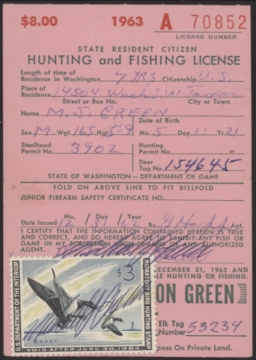 $8.00 1963 A 70852
LICENSE NUMBER
STATE RESIDENT CITIZEN
HUNTING and FISHING LICENSE
Length of time of
Residence in Washington 7 YRS Citizenship U.S.
Place of
Residence 14504 Wash S.W. Tacoma
Street or Box No. City or Town
Name M.J. GREEN
Date of Birth
Sex M Wgt. 165 Hgt 5-9 Mo. 5 Day 11 Yr. 21
Steelhead Hunting
Permit No. 3902 Permit No.
Deer
Tag No. 154645
STATE OF WASHINGTON—DEPARTMENT OF GAME
FOLD ON ABOVE LINE TO FIT BILLFOLD
JUNIOR FIREARM SAFETY CERTIFICATE NO.
Mo. Day Year
Date Issued
I CERTIFY THAT THE INFORMATION CONTAINED HEREON IS TRUE
AND CORRECT, AND DO HEREBY AGREE TO EXHIBIT ANY FISH OR
GAME IN MY POSSESSION
AGENT.
DECEMBER 31, 1963 AND
HUNTING OR FISHING
ON GREEN
Elk Tag
No. 53234
Pass On Private Land.
U.S. DEPARTMENT OF THE INTERIOR
$3
MIGRATORY BIRD HUNTING STAMP
VOID AFTER JUNE 30, 1964